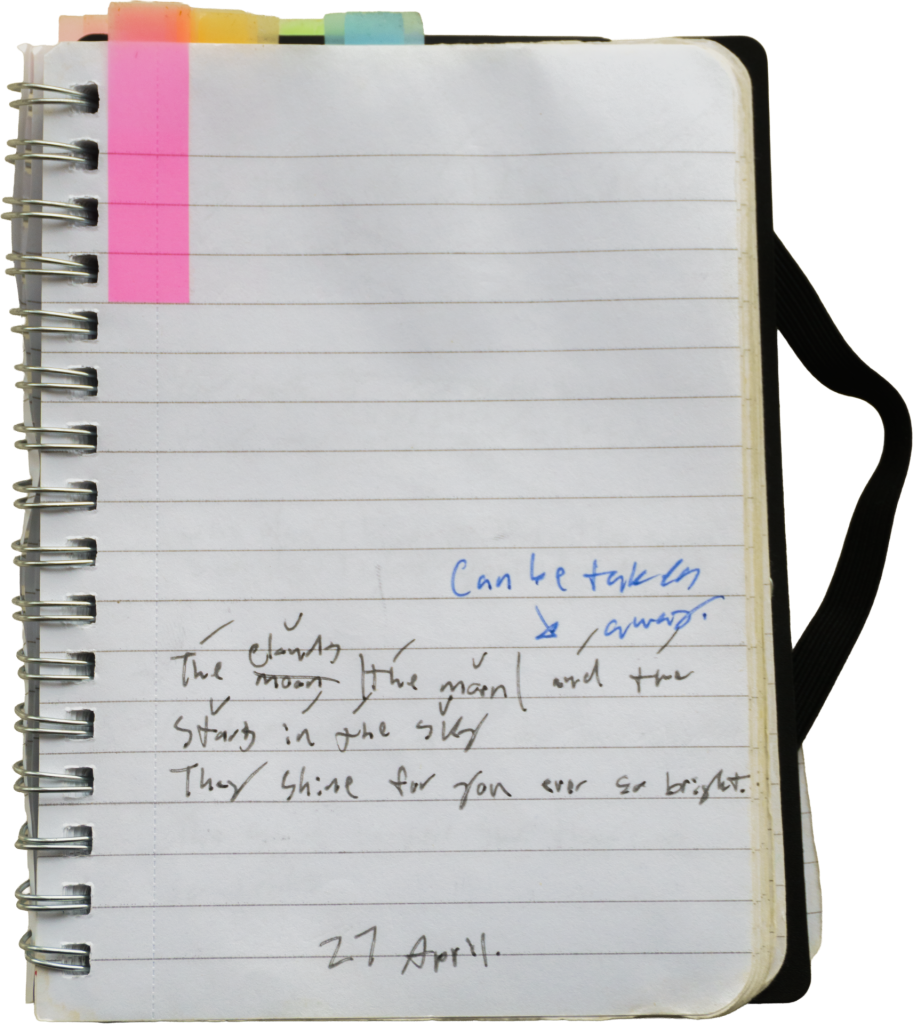 Can be taken
away.
clouds
The moon | the moon | and the
stars in the sky
They shine for you ever so bright.
27 April.